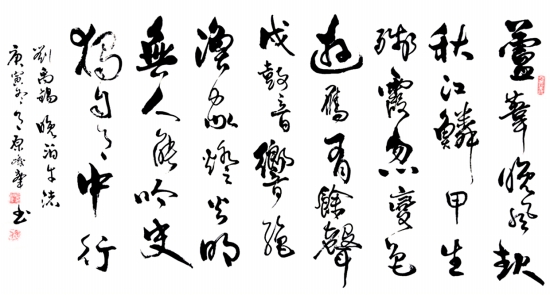 蘆葦晚風起
秋江鱗甲生
殘霞忽變色
遊雁有餘聲
戍鼓音響絕
漁家燈火明
無人能吟史
獨自月中行
劉禹錫晚泊牛渚
庚寅 書